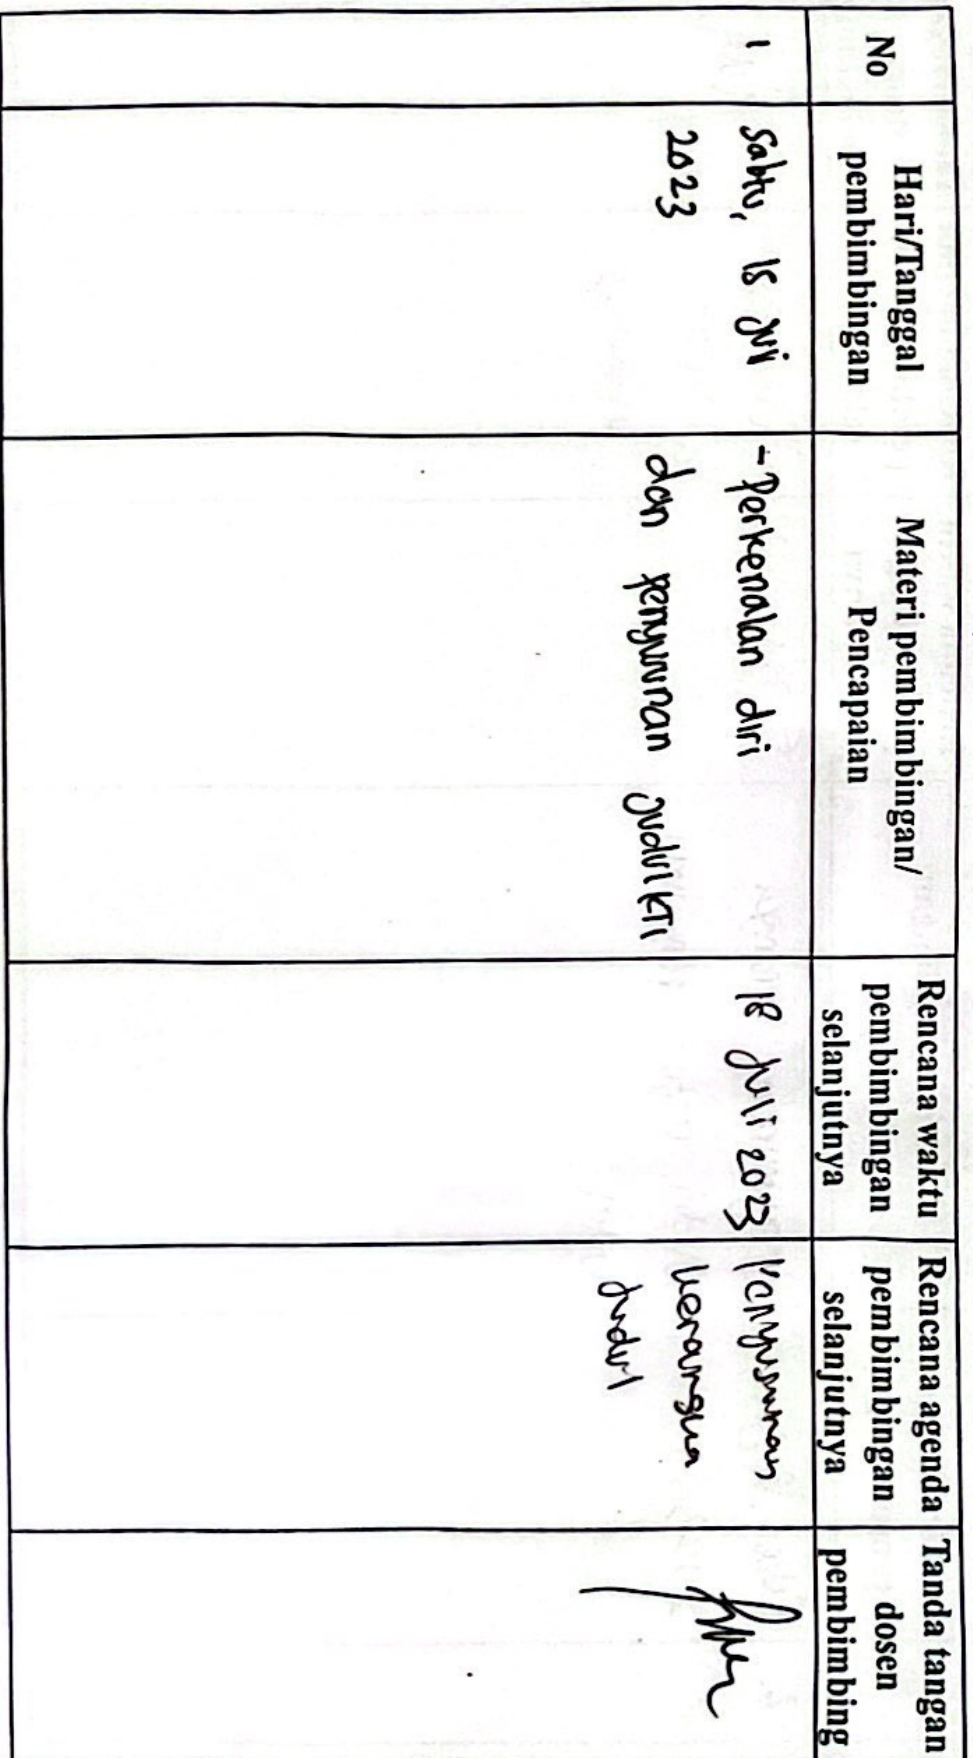 No
Hari/Tanggal
pembimbingan
Materi pembimbingan/
Pencapaian
Rencana waktu
pembimbingan
selanjutnya
Rencana agenda
pembimbingan
selanjutnya
Tanda tangan
dosen
pembimbing
1
Sabtu, 15 Juli
2023
- Perkenalan diri
dan penyusunan Judul KTI
18 Juli 2023
Penyusunan
kerangka
Judul